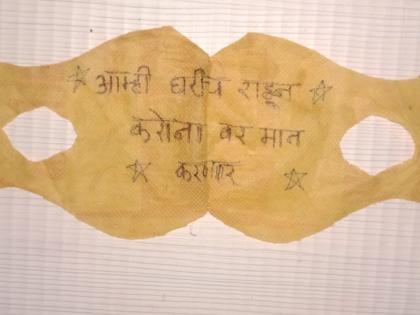 आम्ही घरीच राहून
करोना वर मात
करणार